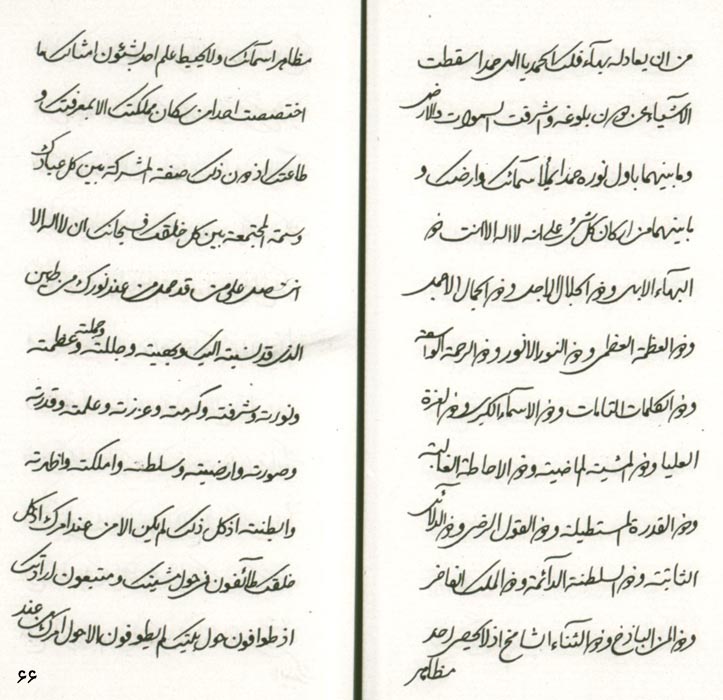 من ان يعادله بهآء فلك الحمد يا الهي حمدا سقطت
الاشياء عن دون بلوغه واشرقت السموات والارض
وما بينهما باول نوره حمدا يملأ سمائك وارضك و
ما بينهما من اركان كل شئ على انه لا اله الا انت ذو
البهاء الابهى وذو الجلال الاجل وذو الجمال الاجمل
وذو العظمة العظمى وذو النور الانور وذو الرحمة الواسعة
وذو الكلمات التامات وذو الاسمآء الكبرى وذو العزة
العليا وذو المشية الماضية وذو الاحاطة الغالبة
وذو القدرة المستطيلة وذو القول الرضي وذو
الثابتة وذو السلطنة الدآئمة وذو الملك الفاخر
وذو المن الباذخ وذو الثناء الشامخ اذ لا يحصي احد
مظاهر
مظاهر اسمآئك ولا يحيط علم احد بشئون امثالك ما
اختصصت احدا من سكان مملكتك الا بمعرفتك و
طاعتك اذ دون ذلك صفة المشركة بين كل عبادك
وسمة المجتمعة بين كل خلقك فسبحانك ان لا اله الا
انت صل على من قد حمل من عند نورك من
الذي قد نسبته اليك وبهيته وجللته وجملته وعظمته
ونورته وشرفته وكرمته وعززته وعلمته وقدرته
وصورته وارضيته وسلطنته واملكته واظهرته
وابطنته اذ كل ذلك لم يكن الا من عند امرك اذ كل
خلقك طآئفون في حول مشيتك ومتبعون ارادتك
اذ طوافون حول بيتك لم يطوفون الا حول امرك من عند
۶۶